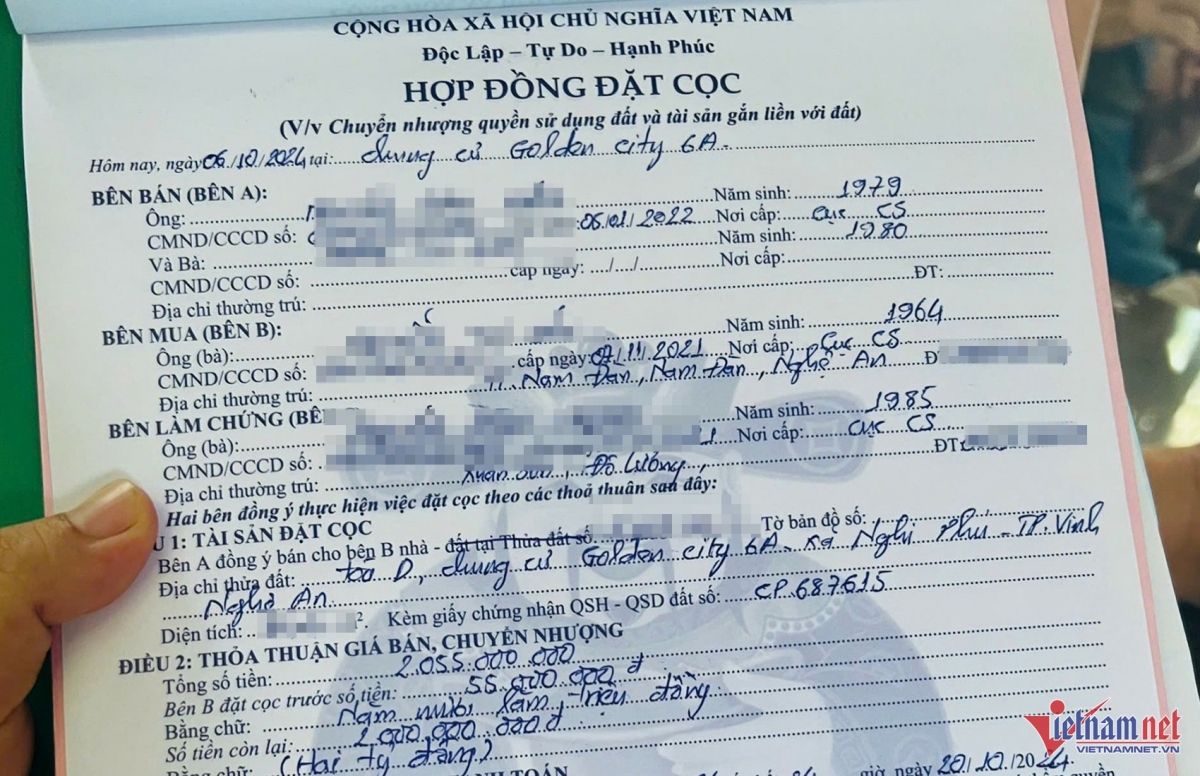 CỘNG HÒA XÃ HỘI CHỦ NGHĨA VIỆT NAM
Độc Lập – Tự Do – Hạnh Phúc
HỢP ĐỒNG ĐẶT CỌC
(V/v Chuyển nhượng quyền sử dụng đất và tài sản gắn liền với đất)
Hôm nay, ngày 06/10/2024 tại: chung cư Golden city 6A
BÊN BÁN (BÊN A):
Ông: Năm sinh: 1979
CMND/CCCD số: 05/01/2022 Nơi cấp: cục CS
Và Bà: Năm sinh: 1980
CMND/CCCD số: cấp ngày: .../.../ Nơi cấp:
Địa chỉ thường trú: ĐT:
BÊN MUA (BÊN B):
Ông (bà): Năm sinh: 1964
CMND/CCCD số: cấp ngày: 07/11/2021 Nơi cấp: cục CS
Địa chỉ thường trú: Nam Đàn, Nam Đàn, Nghệ An
BÊN LÀM CHỨNG (BÊN
Ông (bà): Năm sinh: 1985
CMND/CCCD số: Nơi cấp: cục CS
Địa chỉ thường trú: Đô Lương, ĐT:
Hai bên đồng ý thực hiện việc đặt cọc theo các thoả thuận sau đây:
U 1: TÀI SẢN ĐẶT CỌC
Bên A đồng ý bán cho bên B nhà - đất tại Thửa đất số Tờ bản đồ số:
Địa chỉ thửa đất: toà D, chung cư Golden city 6A - xã Nghi Phú - TP. Vinh
Nghệ An
Diện tích: ². Kèm giấy chứng nhận QSH - QSD đất số: CP 687615
ĐIỀU 2: THỎA THUẬN GIÁ BÁN, CHUYỂN NHƯỢNG
Tổng số tiền: 2.055.000.000
Bên B đặt cọc trước số tiền: 55.000.000 đ
Bằng chữ: Năm mươi lăm triệu đồng
Số tiền còn lại: 2.000.000.000đ
Bằng chữ: (Hai tỷ đồng)
H TOÁN
giờ, ngày 20/10/2024
Vietnamnet
VIETNAMNET.VN